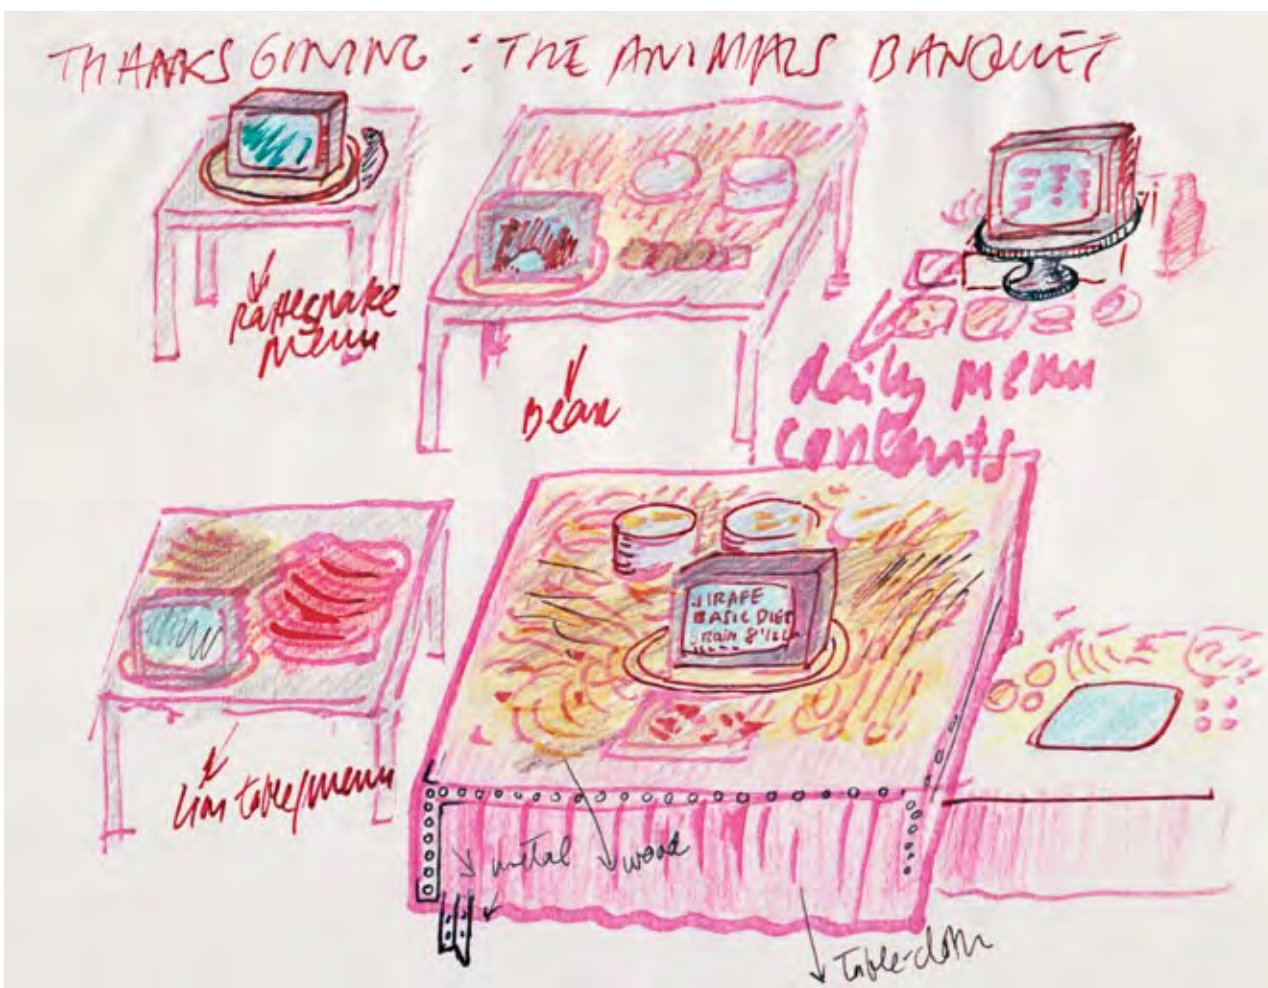 THANKS GIVING : THE ANIMALS BANQUET
Rattlesnake
Menu
Bear
daily menu
contents
GIRAFE
BASIC DIET
Grain 8
Lion table/menu
metal
wood
Table-cloth